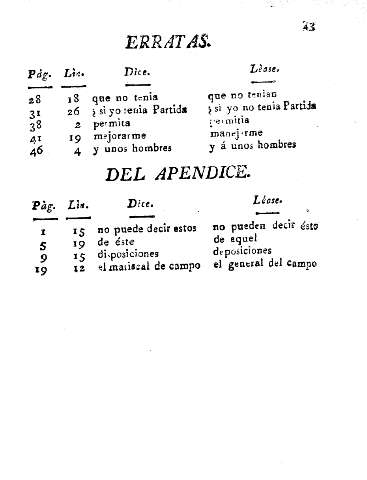 43
ERRATAS.
Pág. Lin. Dice. Léase.
28 18 que no tenia que no tenian
31 26 ¿ si yo tenia Partida ¿ si yo no tenia Partida
38 2 permita permitia
41 19 mejorarme manejarme
46 4 y unos hombres y á unos hombres
DEL APENDICE.
Pàg. Lin. Dice. Léase.
1 15 no puede decir estos no pueden decir ésto
5 19 de éste de aquel
9 15 disposiciones deposiciones
19 12 el mariscal de campo el general del campo